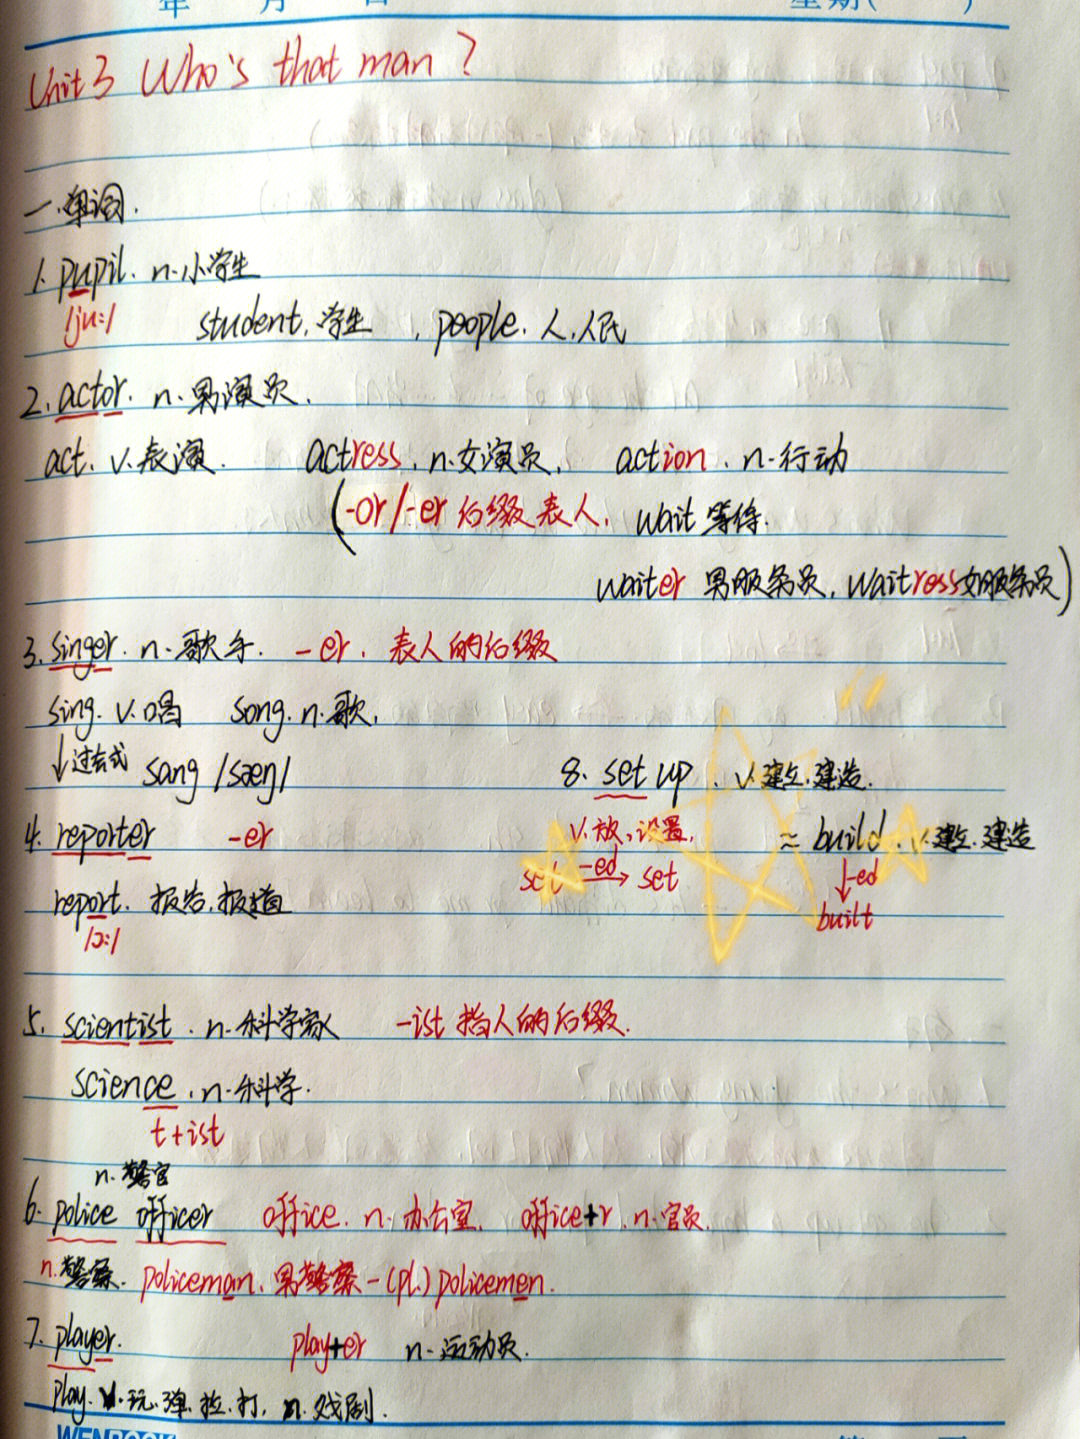 年 月 日 星期( )
Unit 3 Who's that man?
一.单词.
1. pupil. n.小学生
/ju:/ student.学生 , people.人.人民
2. actor. n.男演员.
act. v.表演. actress. n.女演员. action. n.行动
(-or/-er后缀表人. wait 等待.
waiter 男服务员. waitress女服务员)
3. singer. n.歌手. -er. 表人的后缀
sing. v.唱 song. n.歌.
↓过去式 sang /sæŋ/
8. set up. v.建立.建造.
4. reporter -er
v.放、设置. ≈ build. v.建立.建造
set -ed→ set ↓-ed
report. 报告.报道 built
/ɔ:/
5. scientist. n.科学家 -ist 指人的后缀.
science. n.科学.
t+ist
n.警官
6. police officer office. n.办公室. office+r. n.官员.
n.警察. policeman. 男警察-(pl.) policemen.
7. player. play+er n.运动员.
play. v.玩.弹.拉.打. n.戏剧.